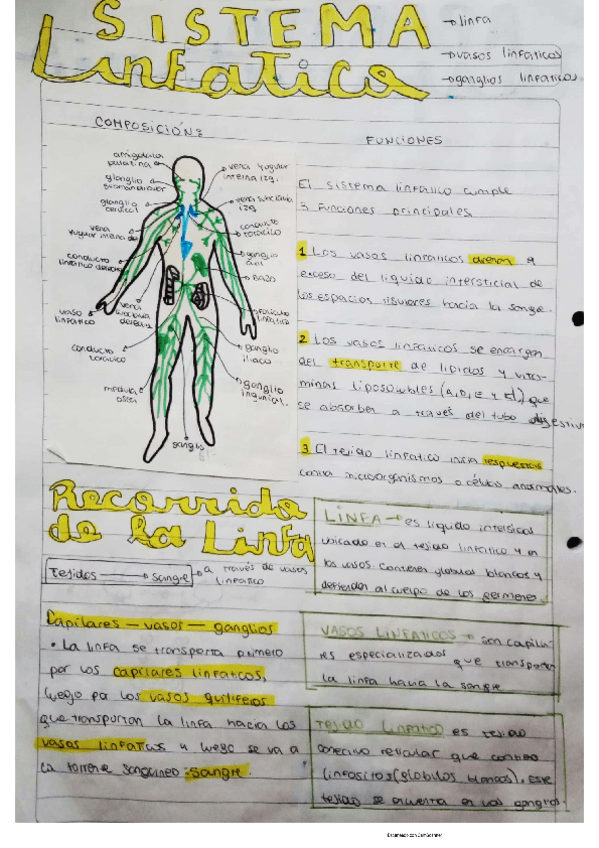 SISTEMA
Linfatico
→linfa
→vasos linfaticos
→ganglios linfaticos
COMPOSICIÓN:
amigdalas
palatina
ganglio
submandibular
ganglio
cervical
vena
yugular interna der
conducto
linfatico derecho
vaso
linfatico
vena
subclavia
derecha
conducto
toracico
medula
osea
ganglio
vena yugular
interna izq.
vena subclavia
izq
conducto
toracico
ganglio
axil
BAZO
linfatico
ganglio
iliaco
ganglio
inguinal.
FUNCIONES
El sistema linfatico cumple
3 funciones principales
1 Los vasos linfaticos drenan el
exceso del liquido intersticial de
los espacios tisulares hacia la sangre.
2 Los vasos linfaticos se encargan
del transporte de lipidos y vita-
minas liposolubles (A,D,E y K) que
se absorben a traves del tubo digestivo
3 El tejido linfatico inicia respuestas
contra microorganismos o células anormales.
Recorrido
de la Linfa
Tejidos → sangre → a través de vasos
linfatico
Capilares — vasos — ganglios
• La linfa se transporta primero
por los capilares linfaticos,
luego por los vasos quiliferos
que transportan la linfa hacia los
vasos linfaticos y luego se va a
la torrente sanguineo: sangre.
LINFA → es liquido intersticial
ubicado en el tejido linfatico y en
los vasos. Contienen globulos blancos y
defienden al cuerpo de los germenes.
VASOS LINFATICOS → son capila-
res especializados que transportan
la linfa hacia la sangre
TEJIDO LINFATICO es tejido
conectivo reticular que contiene
linfocitos (globulos blancos). Este
tejido se encuentra en los ganglios.
Escaneado con CamScanner